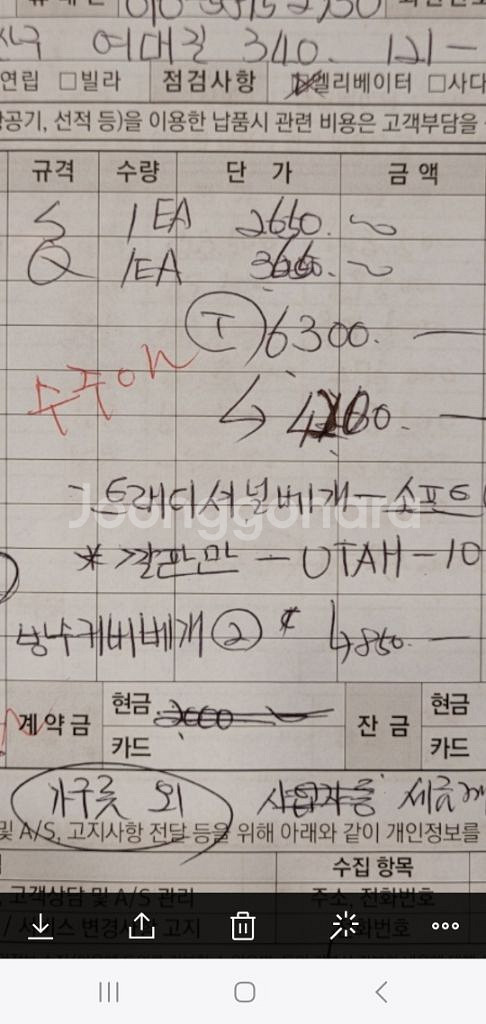 여대길 340. 121-
연립 □빌라 점검사항 엘리베이터 □사다
항공기, 선적 등)을 이용한 납품시 관련 비용은 고객부담을
규격 수량 단 가 금 액
S 1EA 2650.
Q 1EA
T 6300.
수주ON
트래디셔널베개-소프트
* 깔판만 - UTAH-10
방수커버베개 ②
Joonggonara
계약금 현금 잔 금 현금
카드 카드
가구릇 외 세금계
및 A/S, 고지사항 전달 등을 위해 아래와 같이 개인정보를
수집 항목
, 고객상담 및 A/S 관리 주소, 전화번호
/ 서비스 변경사항 고지 전화번호